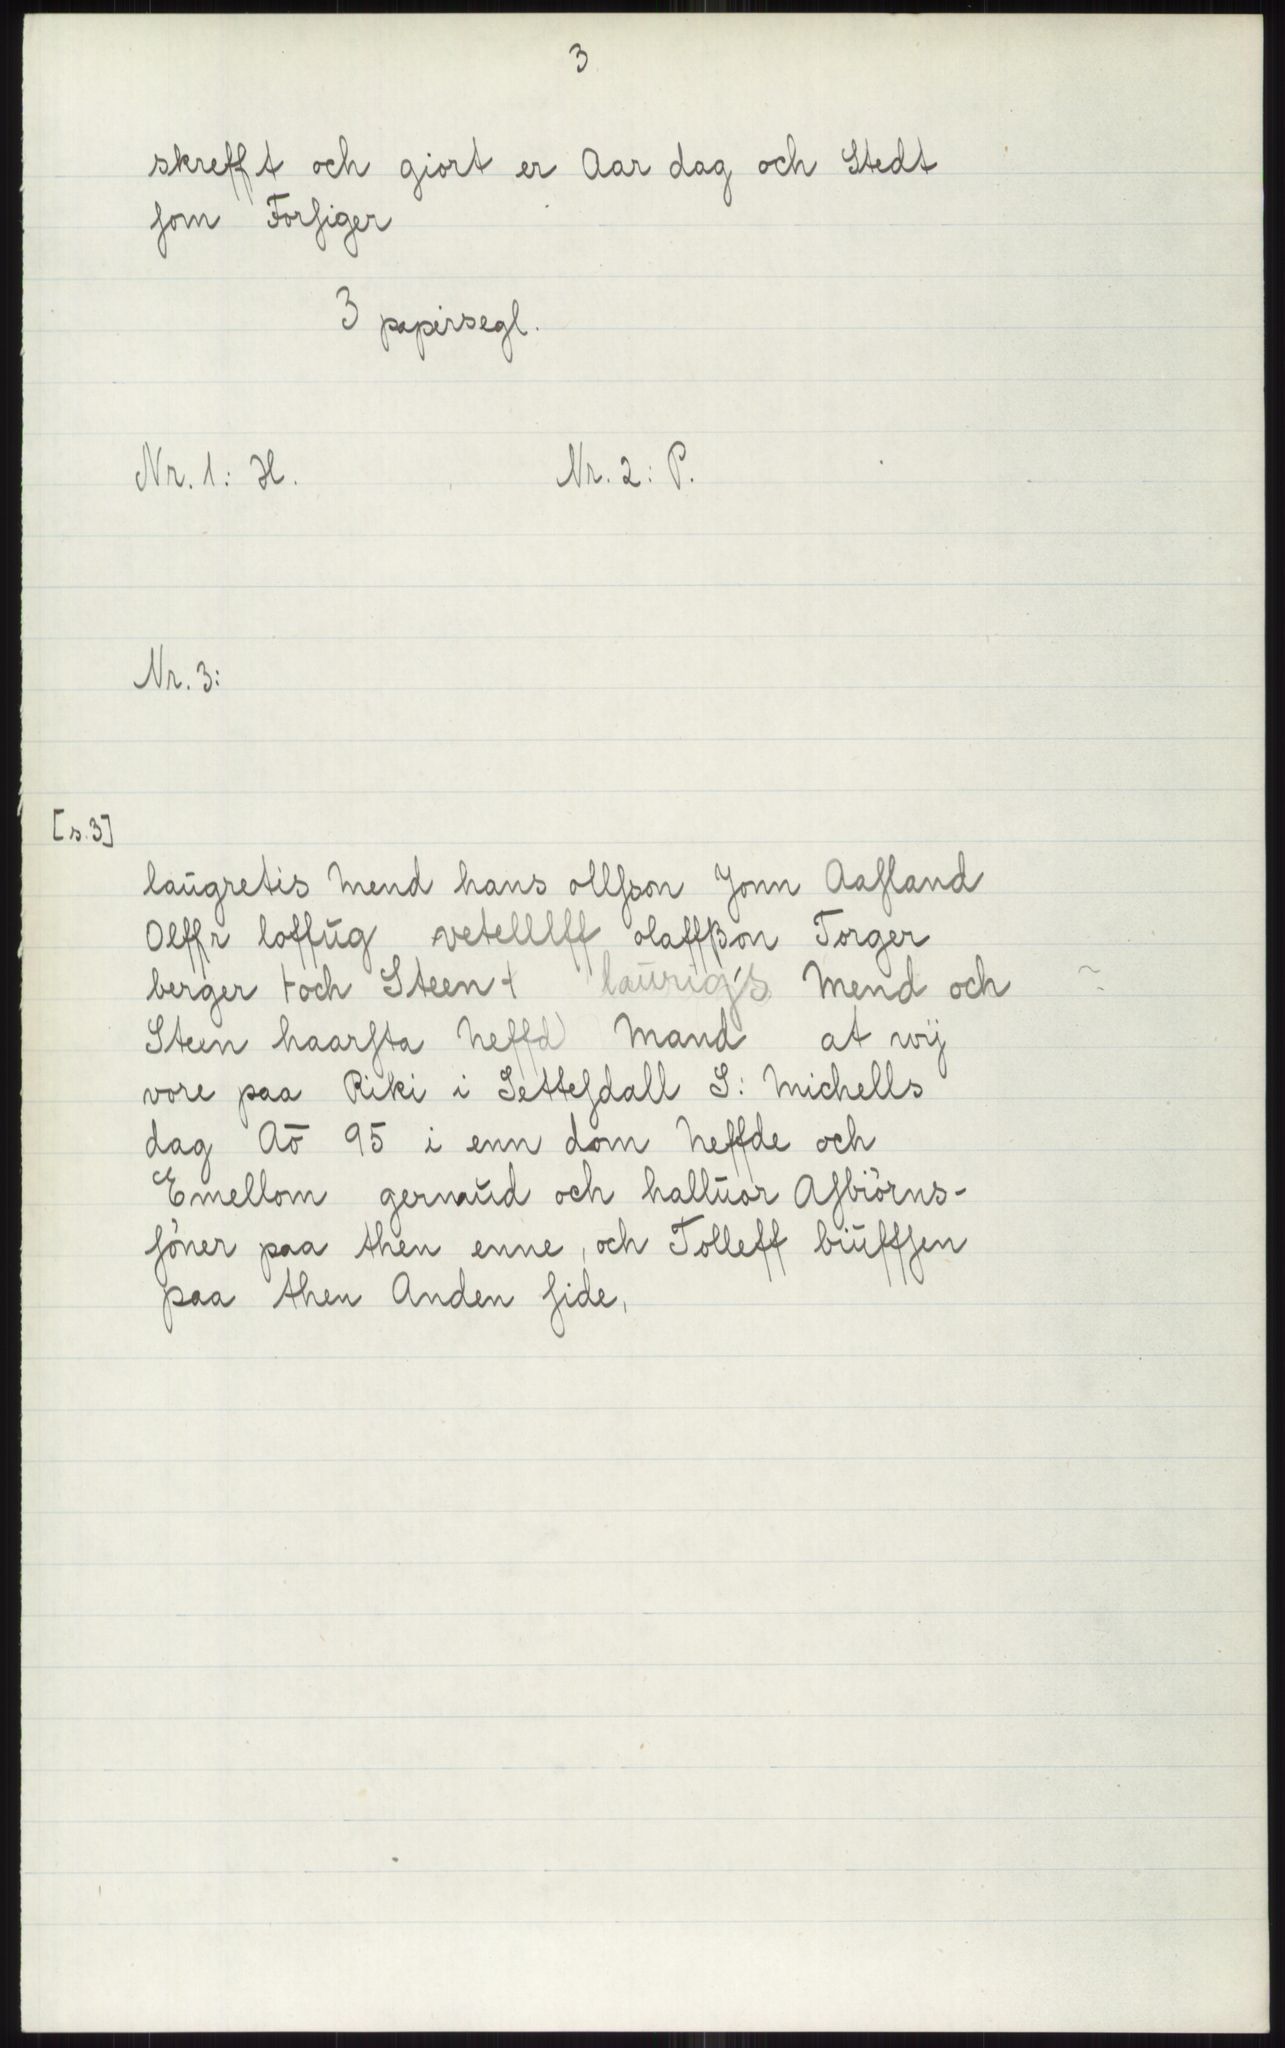 3
skrefft och giort er Aar dag och Stedt
ſom Forſiger
3 papirsegl.
Nr. 1: H. Nr. 2: P.
Nr. 3:
[s. 3]
laŭgretis Mend hans ollſson Jonn Aaſland
Olffr loffŭg vetelllff olaffßon Torger
berger + och Steen + laŭrig's Mend och
Steen haarſta heffd Mand at wij
vore paa Riki i Setteſdall S: Michells
dag Aō 95 i enn dom heffde och
Emellom gernaŭd och hallŭor Aſbiörns-
ſöner paa then enne, och Tolleff biŭffſen
paa then Anden ſide,